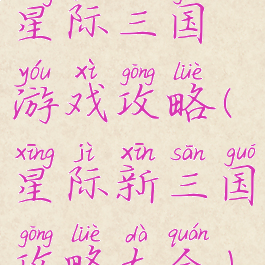 星际三国
yóu xì gōng lüè
游戏攻略(
xīng jì xīn sān guó
星际新三国
gōng lüè dà quán
攻略大全)